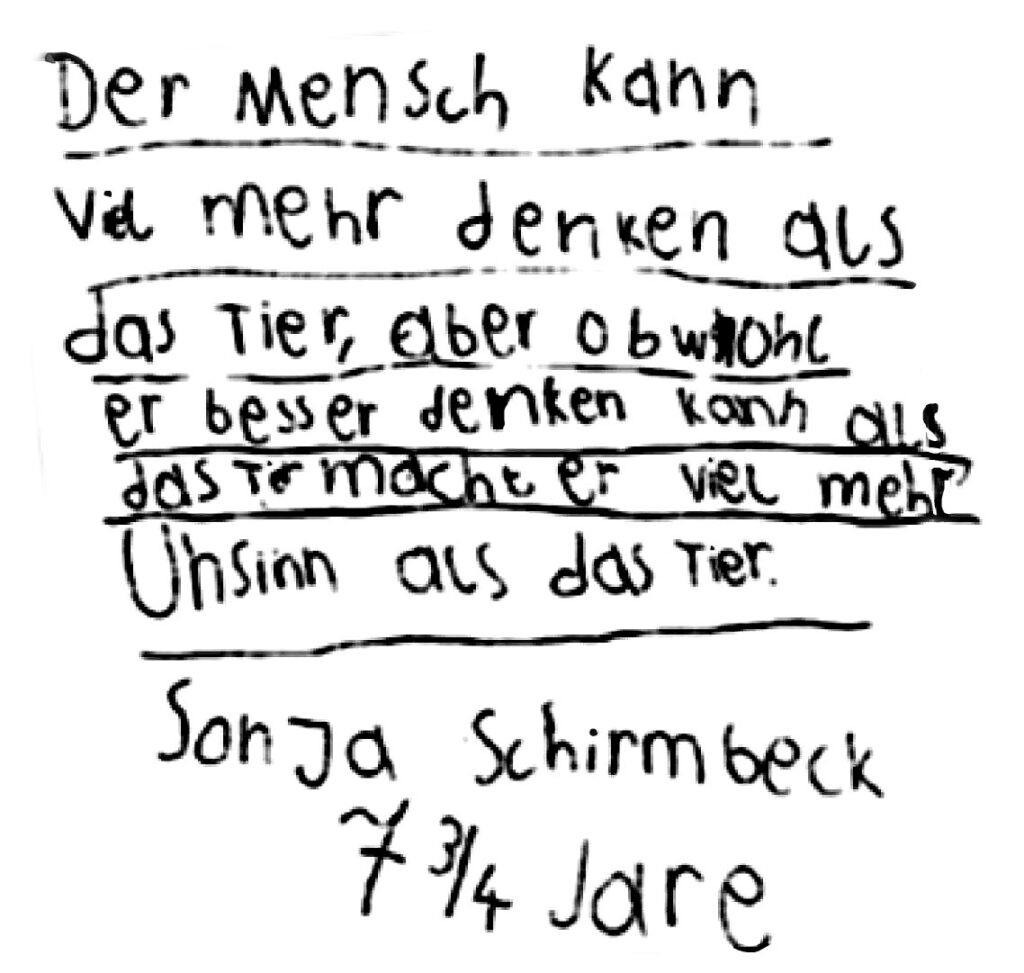 Der Mensch kann
viel mehr denken als
das Tier, aber obwohl
er besser denken kann als
das Tier macht er viel mehr
Unsinn als das Tier.
Sonja Schirmbeck
7 3/4 Jare